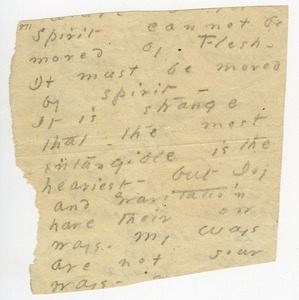 Spirit cannot be
moved by Flesh-
It must be moved
by spirit-
It is strange
that the most
intangible is the
heaviest- but Joy
and Gravitation
have their own
ways. My ways
are not your
ways-